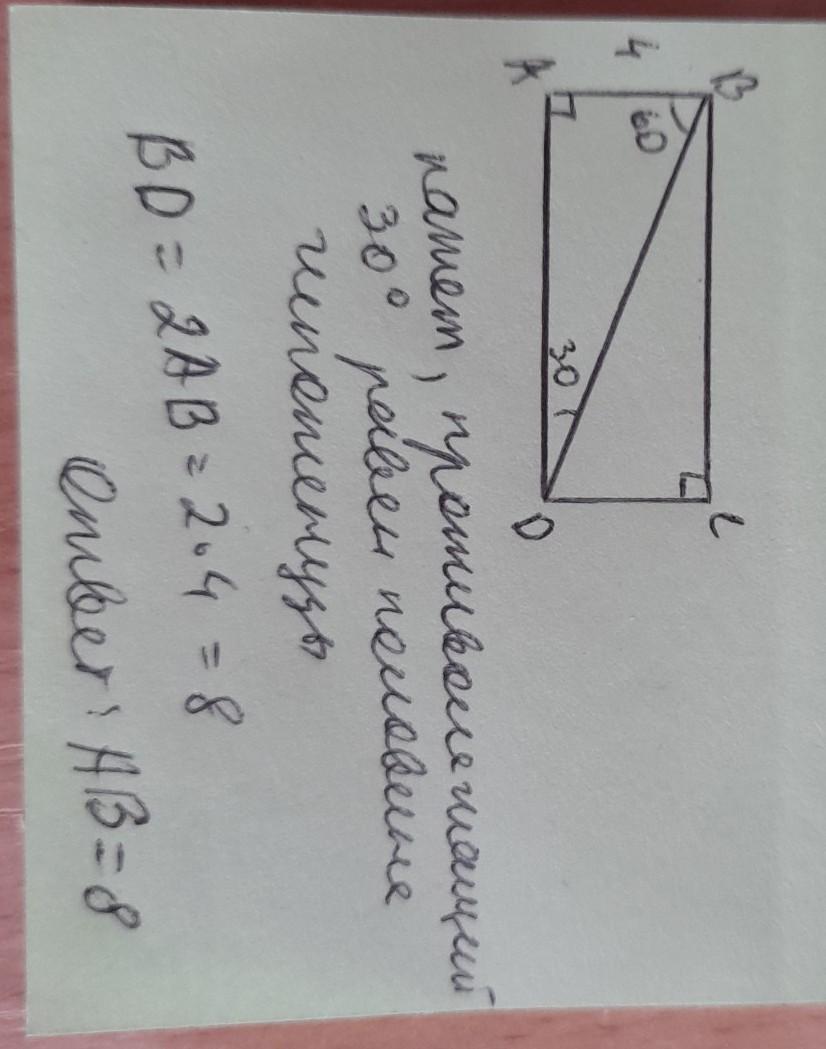 A
4
B
60
30
D
C
катет, противолежащий
30° равен половине
гипотенузы
BD = 2AB = 2·4 = 8
Ответ: AB = 8